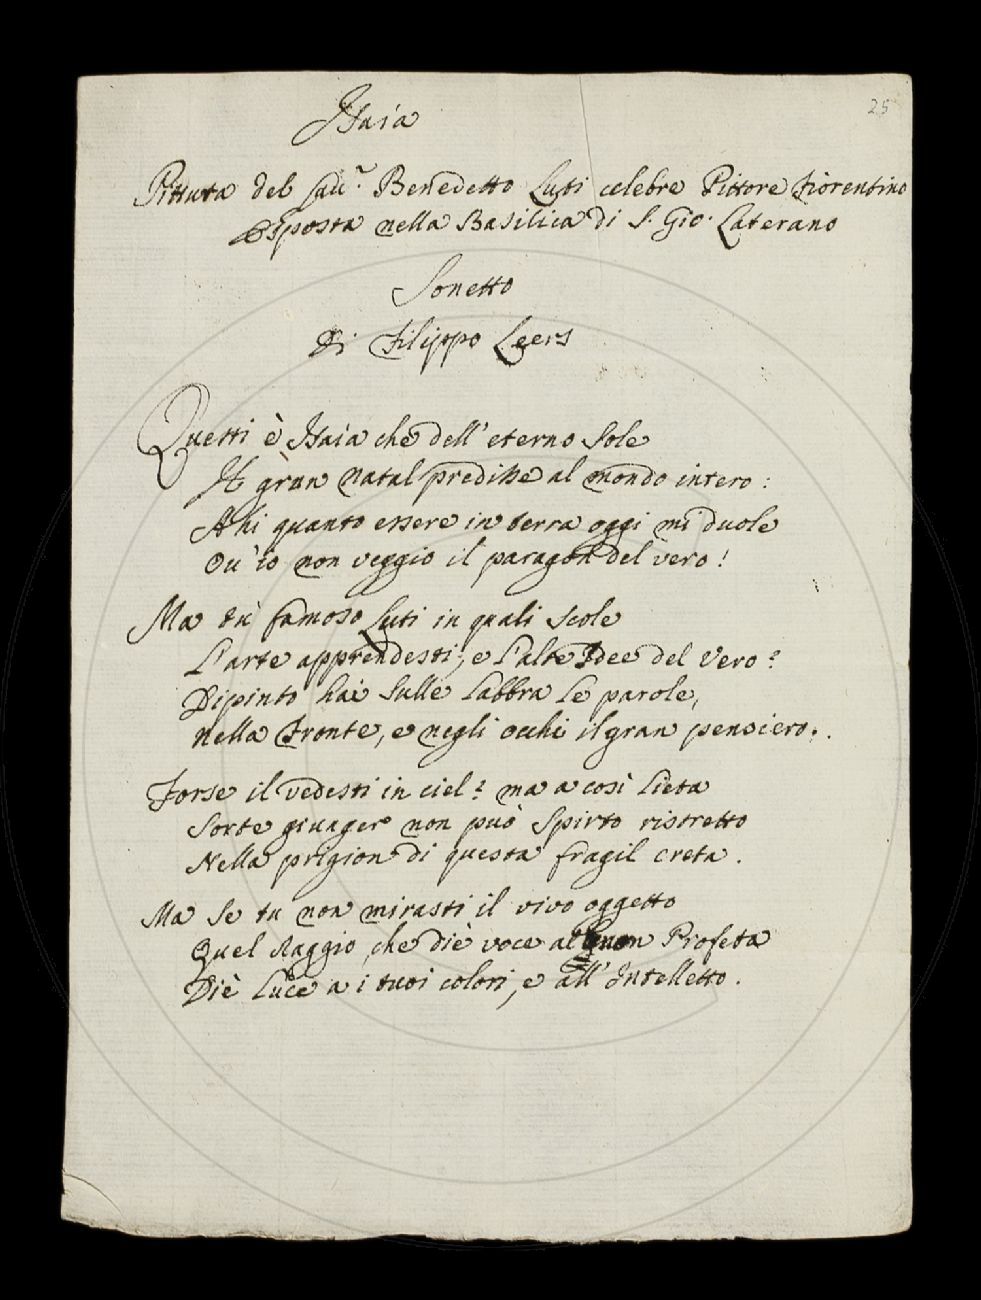 25
Isaia
Pittura del Cav.r Benedetto Luti celebre Pittore Fiorentino
Esposta nella Basilica di S. Gio. Laterano
Sonetto
Di Filippo Leers
Questi è Isaia che dell' eterno Sole
Il gran natal predisse al mondo intero:
Ahi quanto essere in terra oggi mi duole
Ou' io non veggio il paragon del vero!
Ma tu famoso Luti in quali scole
L'arte apprendesti, e l'alte Idee del vero?
Dipinto hai sulle labbra le parole,
nella Fronte, e negli occhi il gran pensiero.
Forse il vedesti in ciel? ma a così lieta
Sorte giugner non può Spirto ristretto
Nella prigion di questa fragil creta.
Ma se tu non mirasti il vivo oggetto
Quel Raggio, che diè voce al gran Profeta
Diè luce a i tuoi colori, e all' Intelletto.